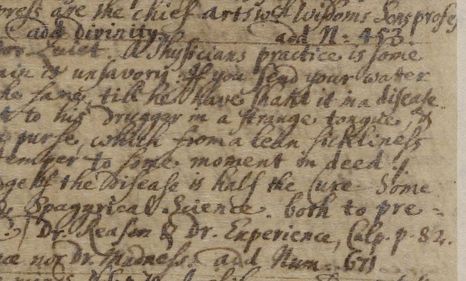 press are the chief arts wch Wisdoms Sons profes
add divinity. add N: 453.
Quiet. A Physicians practice is some
is unsavory. If you send your water
he sang, till he have shak't it in a disease
to his Druggar in a strange tongue, &
purse, which from a lean sickliness
temper to some moment in deed!
dge of the Disease is half the Cure. Some
Spagyrical Science. both to pre=
Dr. Reason & Dr. Experience, Culp. p. 82.
nor Dr. Madness. add Num. 671